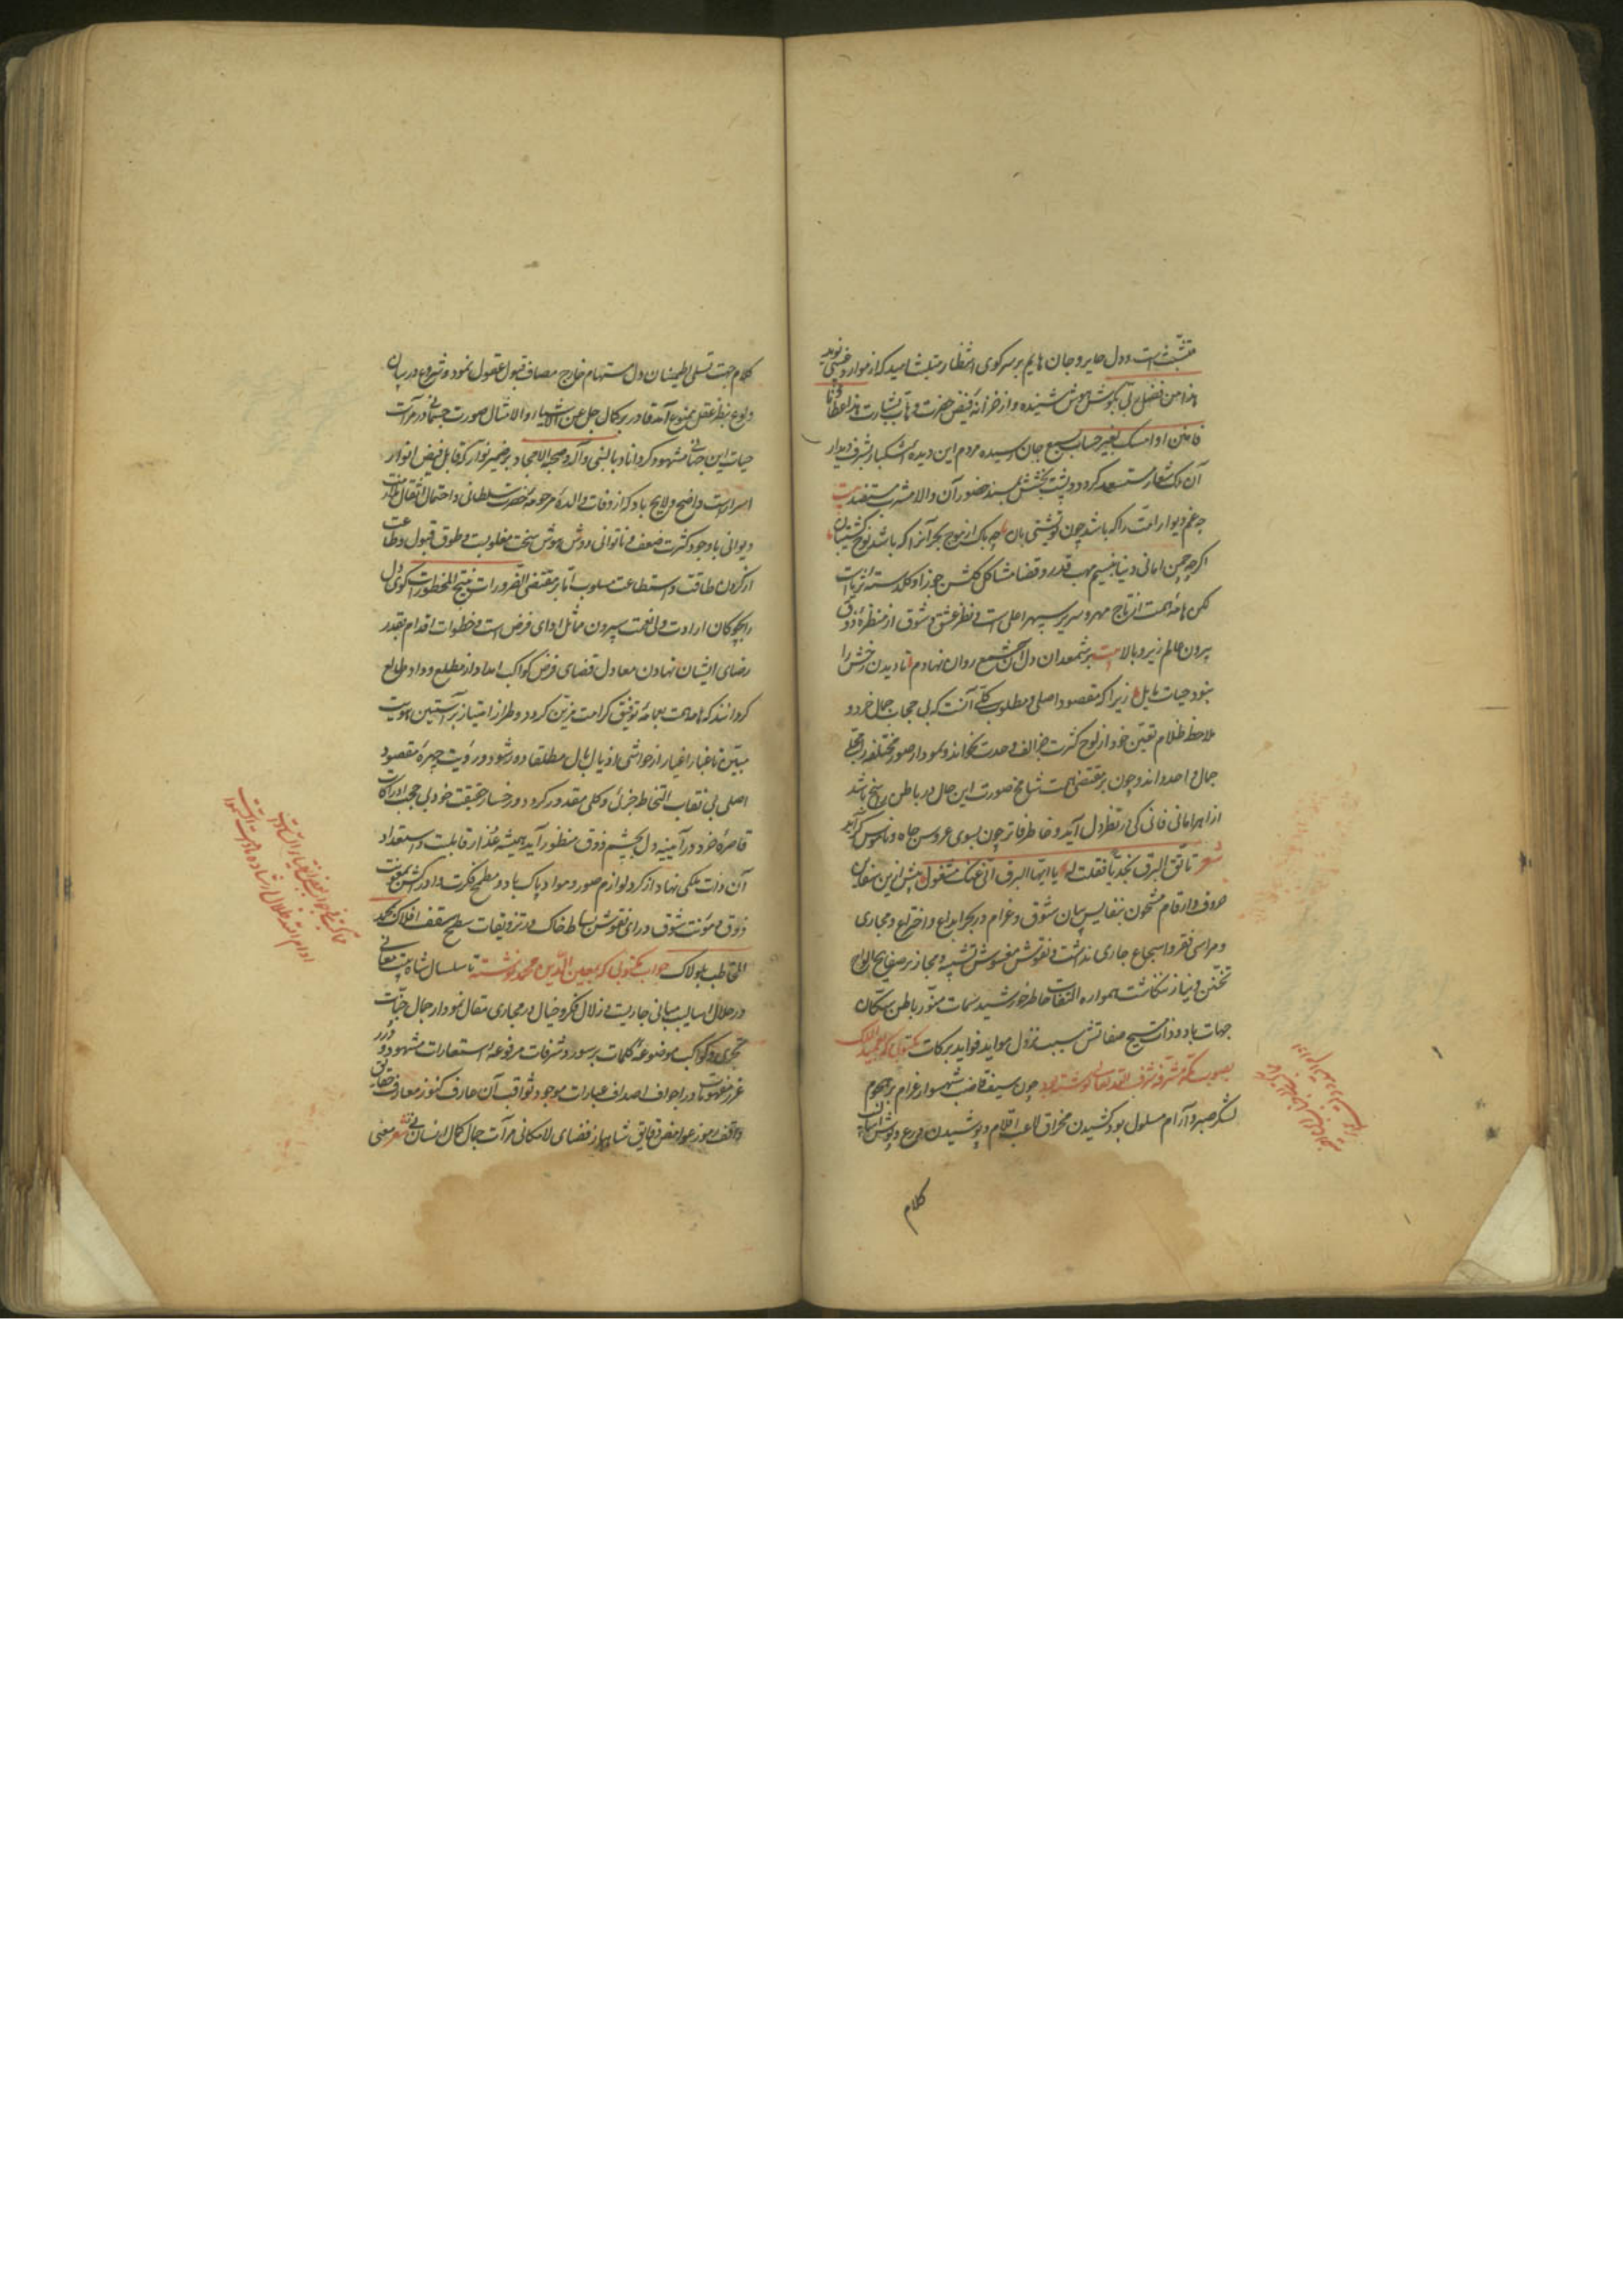 متشبث است و دل حایر و جان هایم بر سر کوی انتظار متلبث امید که از موارد غیبی نوید
هذا من فضل ربی بگوش هوش شنیده و از خزانهٔ فیض حضرت وهاب بشارت هذا عطاؤنا
فامنن او امسک بغیر حساب بسمع جان رسیده مردم این دیده اشکبار بشرف دیدار
آن ملک شعار مستسعد کردد و پشت بخشش بمسند حضور آن والا مشرب مستفید بیت
چه غم دیوار امت را که باشد چون تو پشتی بان چه باک از موج بحر آنرا که باشد نوح کشتیبان
اگرچه چمن امانی دنیا بنسیم مهب قدر و قضا مشاکل گلشن جوزا و گلدستهٔ ثریاست
لکن هامهٔ همت از تاج مهر و سریر سپهر اعلی است و نظر عشق و شوق از منظرهٔ ذوق
بیرون عالم زیر و بالا بیت بر شمعدان دل آن شمع روان نهادم تا دیدن رخش را
نبود حیات حایل زیرا که مقصود اصلی و مطلوب کلی آنست که بی حجاب جمال خرد و
ملاحظهٔ ظلام تعین خود از لوح کثرت جز الف وحدت نخواند و نمودار صور مختلفه را مجلی
جمال واحد داند و چون بر مقتضی همت شامخ صورت این حال در باطن راسخ باشد
ازاهر امانی فانی کی در نظر دل آید و خاطر فاتر چون بسوی عروس جاه و ناموس گراید
شعر تألق البرق نجدیا فقلت له یا ایها البرق انی عنک مشغول بیش ازین سفاین
حروف و ارقام مشحون بنفایس بیان شوق و غرام در بحر ابداع و اختراع و مجاری
و مراسی فقر و اسجاع جاری نداشت و نقوش مغشوش تشبیه و مجاز بر صفایح الواح
تحنن و نیاز ننگاشت همواره التفات خاطر خورشید سمات منور باطن سکان
جهات باد و ذات مسیح صفاتش سبب نزول مواید فواید برکات مکتوبی که بعمید الملک
بصوب مکه مشرفه شرفها الله تعالی نوشته بود چون سیف قاضب شهسوار غرام بر هجوم
لشکر صبر و آرام مسلول بود کشیدن مخراق لاعب اقلام و پوشیدن درع و پوش اسالیب
کلام
کلام جهت تسلی و اطمینان دل مستهام خارج مصاف قبول عقول نمود و شروع در بیان
ولوع بنظر عقل ممنوع آمد قادر بر کمال جل عن الاشباه والامثال صورت جسمانی در مرآت
حیات این جانی مشهود کرداناد بالنبی وآله وصحبه الامجاد بر ضمیر نوار که قابل فیض انوار
اسرار است واضح و لایح باد که از وفات والدهٔ مرحومهٔ حضرت سلطانی و احتمال اثقال
دیوانی باوجود کثرت ضعف و ناتوانی دوش هوش سخت مغلوبست و طوق قبول و طاعت
از گردن طاقت و استطاعت مسلوب اما بر مقتضی الضرورات تبیح المحظورات گوی دل
را بچوگان ارادت ولی نعمت سپردن مماثل ادای فرض است و خطوات اقدام بقدر
رضای ایشان نهادن معادل قضای قرض کواکب امداد از مطلع وداد طالع
گردانند که هامهٔ همت بعمامهٔ توفیق کرامت مزین گردد و طراز امتیاز بر آستین هویت
مبین تا غبار اغیار از حواشی اذیال بال مطلقا دور شود و رؤیت چهرهٔ مقصود
اصلی بی نقاب التحاظ جزئی و کلی مقدور گردد و رخسار حقیقت خود بی حجب ادراکات
قاصرهٔ خرد در آیینهٔ دل بچشم ذوق منظور آید همیشه عذار قابلیت و استعداد
آن ذات ملکی نهاد از گرد لوازم صور و مواد پاک باد و مطمح فکرت و ادراکش بمعونت
ذوق و مؤنت شوق ورای نقوش بساط خاک و تزویقات سطح سقف افلاک بمحمد
المخاطب بلولاک جواب مکتوبی که بمعین الدین محمد نوشته تا سلسال شاه بیت معانی
در خلال اسالیب مبانی جاریست و زلال فکر و خیال در مجاری مقال نمودار جمال جنات
تجری و کواکب موضوعهٔ کلمات بر سور و شرفات مرفوعهٔ استعارات مشهود و درر
غرر مفهومات در اجواف اصداف عبارات موجود ثواقب آن عارف کنوز معارف حقایق
واقف رموز عوارف دقایق شاهباز فضای لامکانی مرآت جمال کمال انسانی شعر معنی